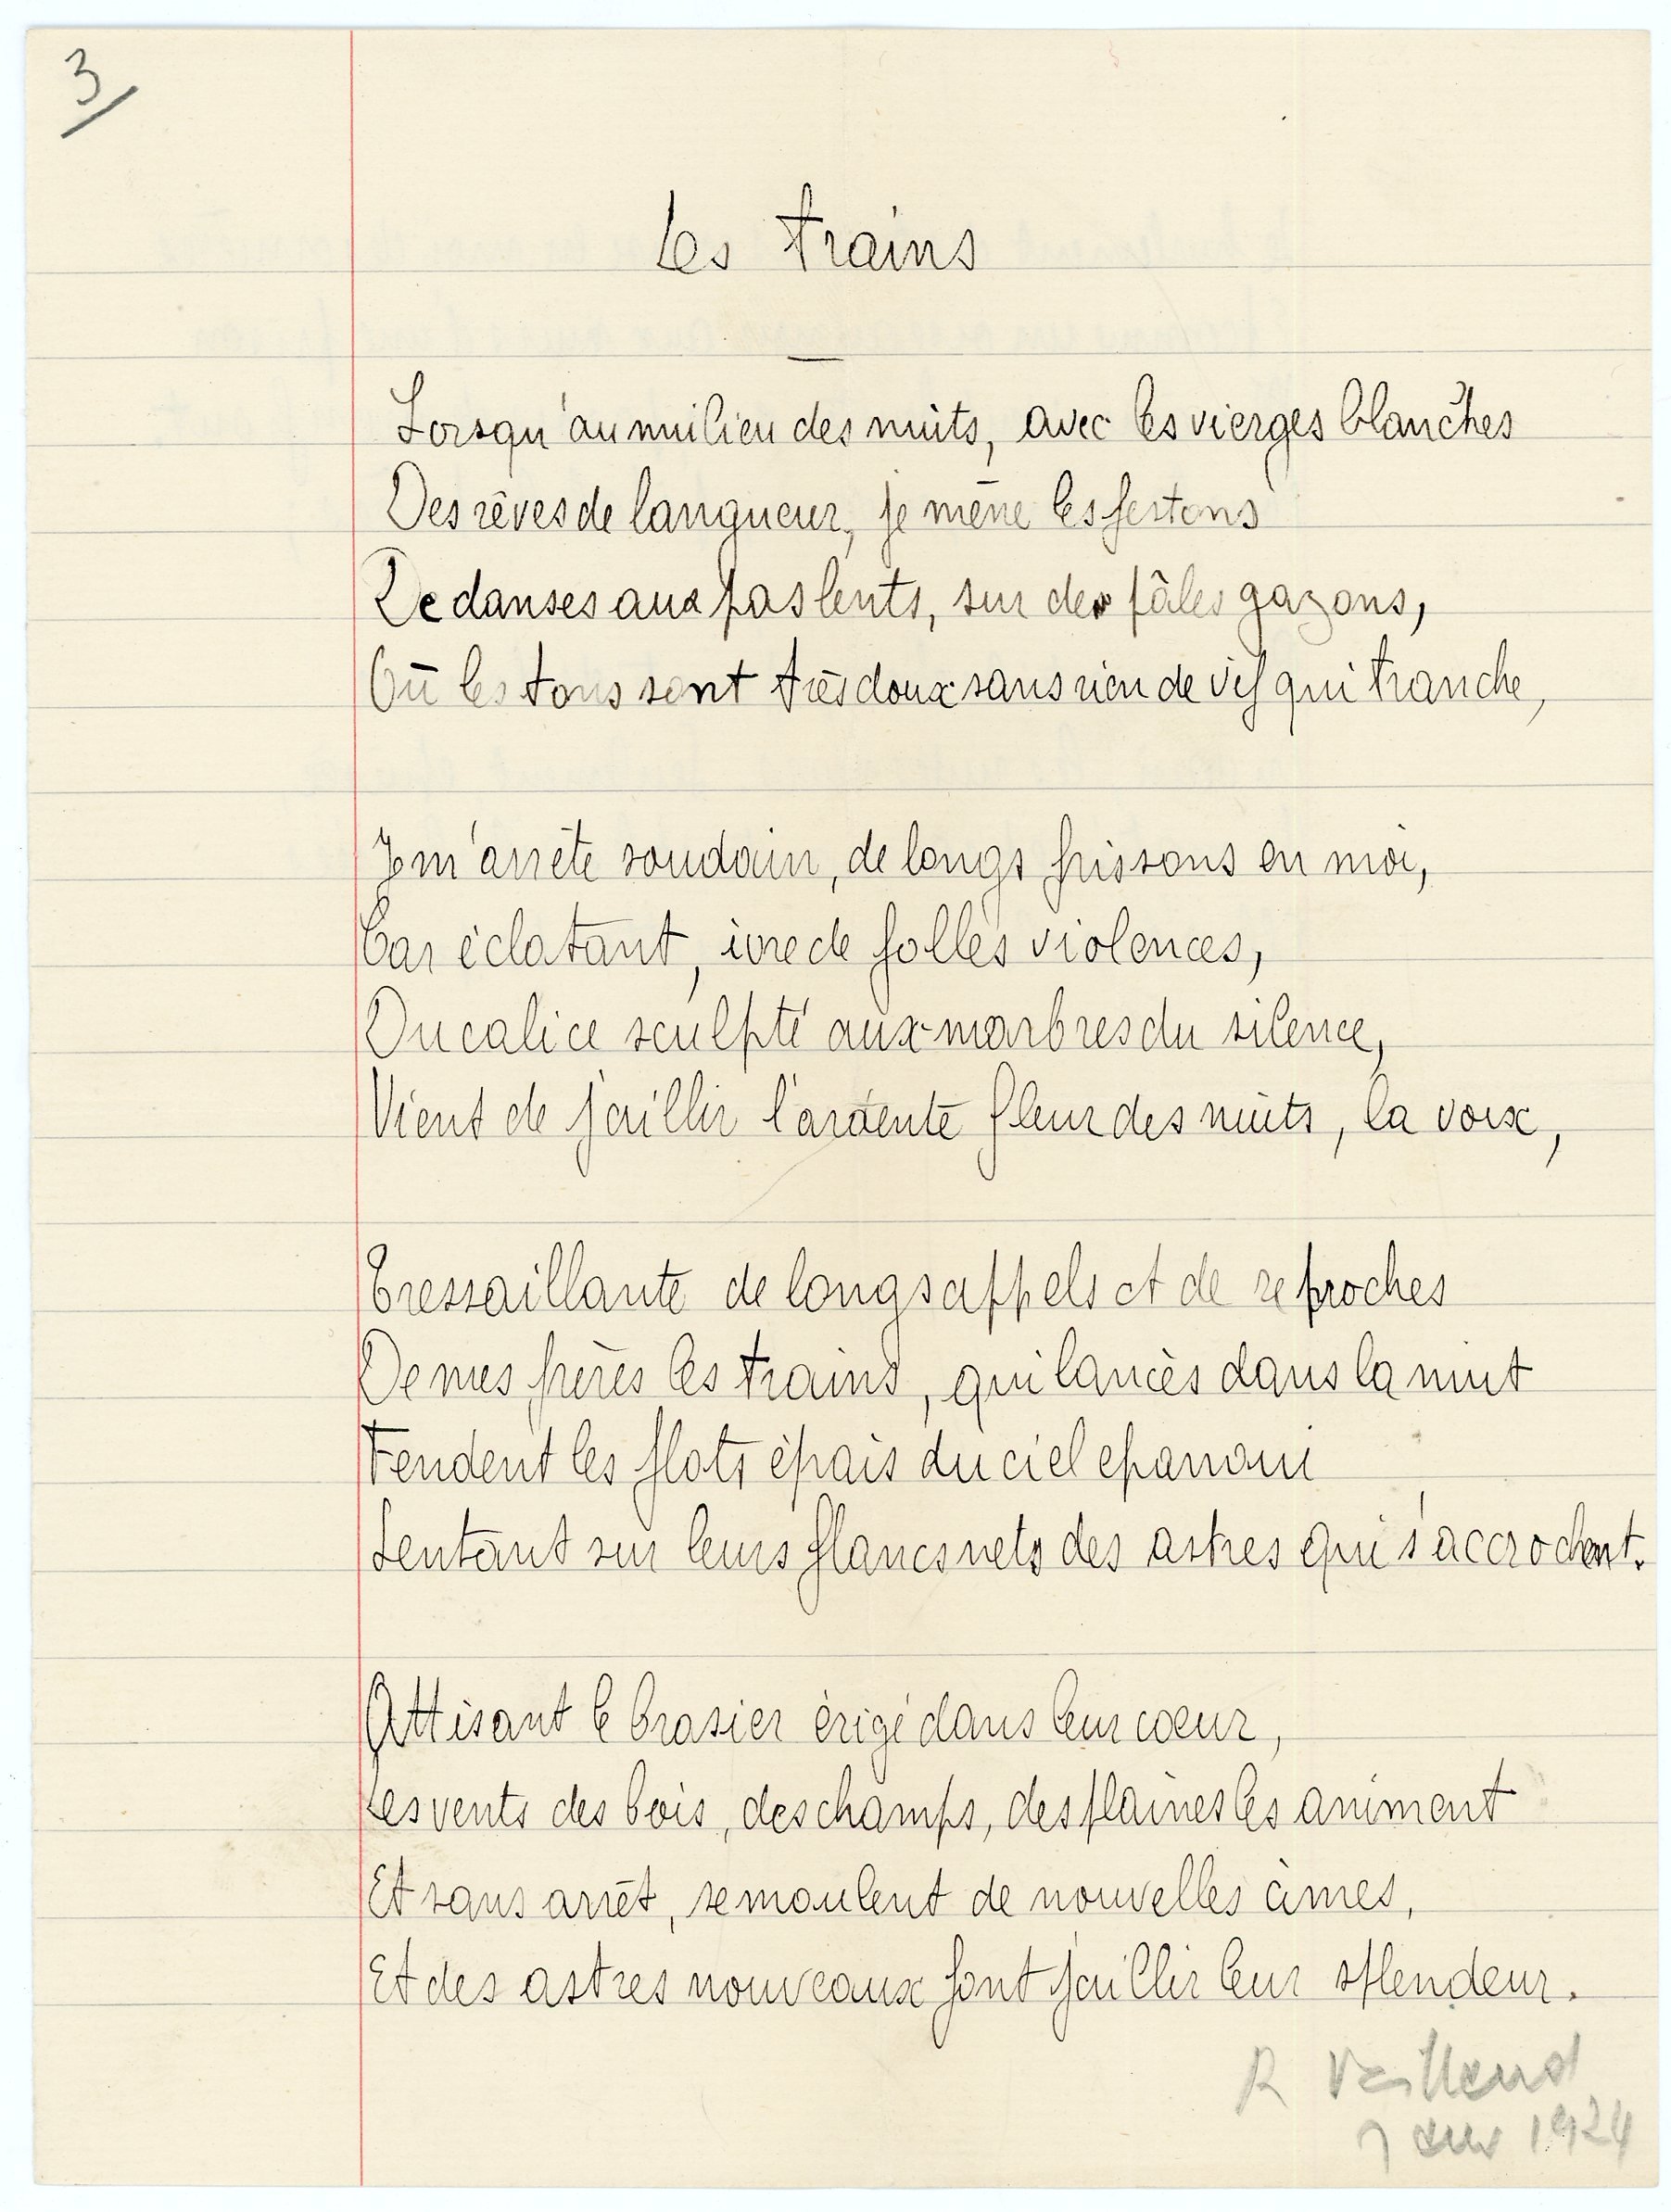 3
Les trains
Lorsqu'au milieu des nuits, avec les vierges blanches
Des rêves de langueur, je mène les festons
De danses aux pas lents, sur des pâles gazons,
Où les tons sont très doux sans rien de vif qui tranche,
Je m'arrête soudain, de longs frissons en moi,
Car éclatant, ivre de folles violences,
Du calice sculpté aux marbres du silence,
Vient de jaillir l'ardente fleur des nuits, la voix,
Tressaillante de longs appels et de reproches
De mes frères les trains, qui lancés dans la nuit
Fendent les flots épais du ciel epanoui
Sentant sur leurs flancs nets des astres qui s'accrochent.
Attisant le brasier érigé dans leur cœur,
Les vents des bois, des champs, des plaines les animent
Et sans arrêt, se moulent de nouvelles cimes,
Et des astres nouveaux font jaillir leur splendeur.
R Vailland
1924